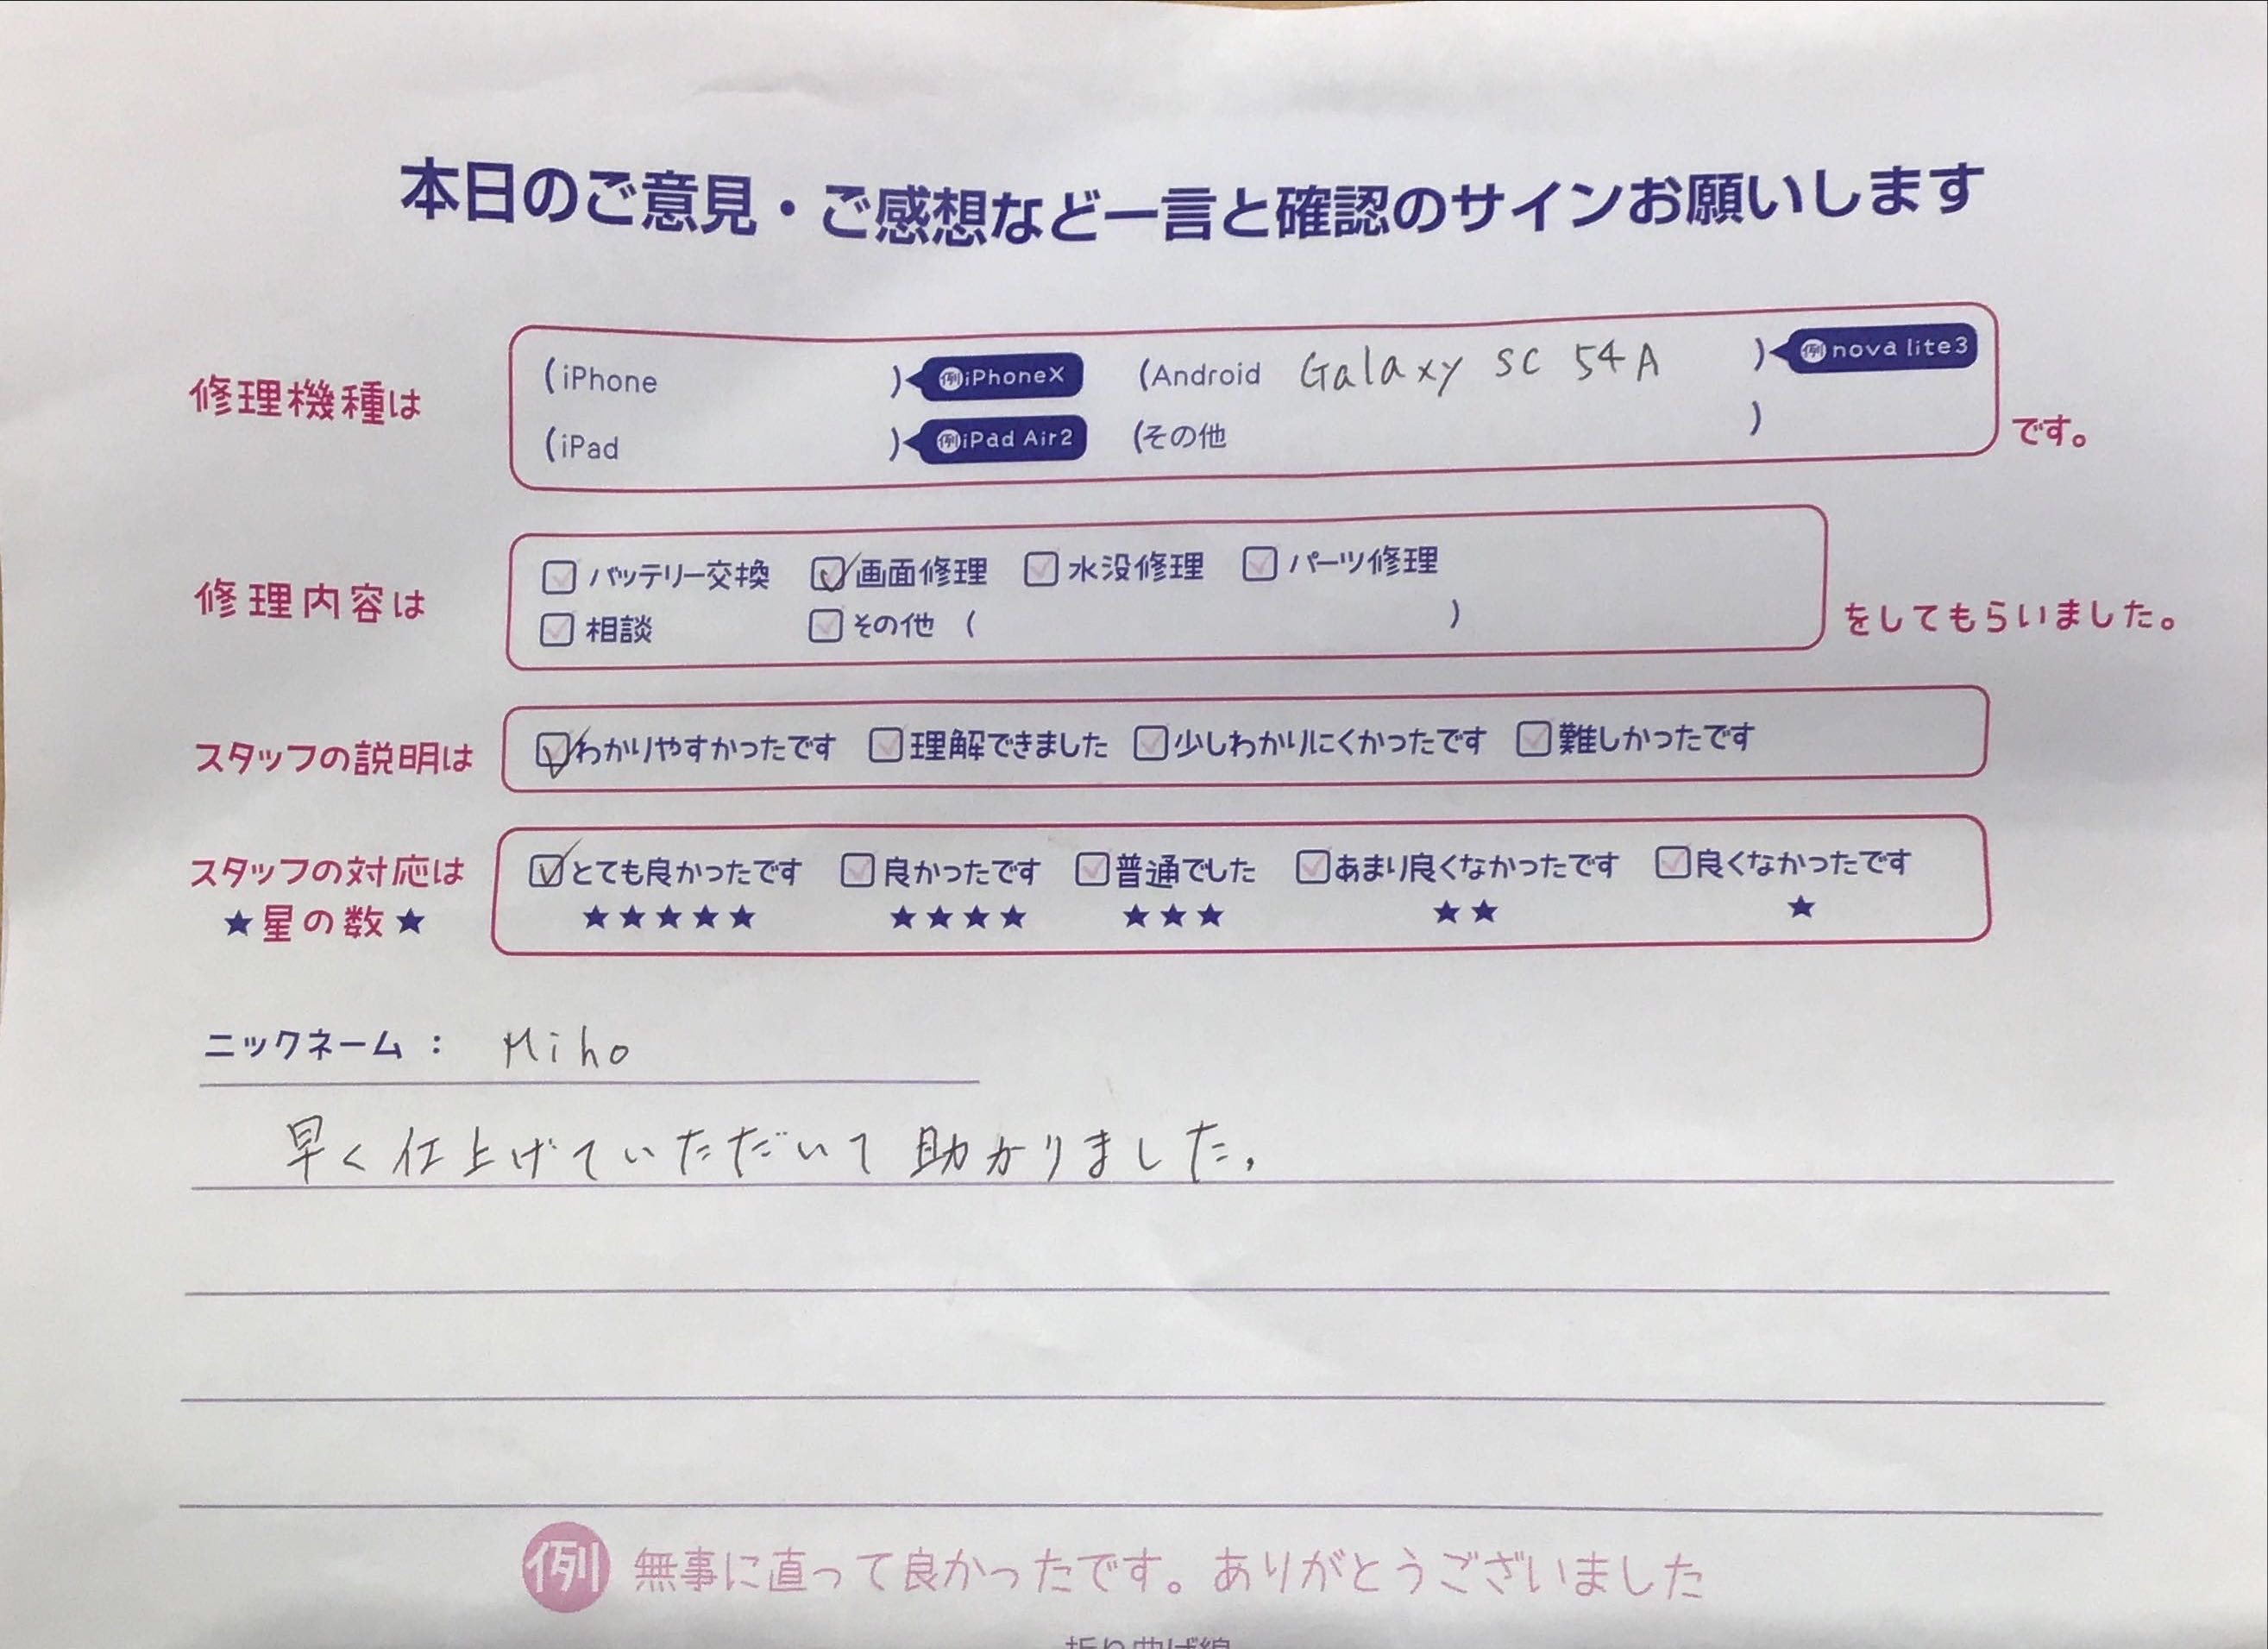 本日のご意見・ご感想など一言と確認のサインお願いします
修理機種は (iPhone ) 例iPhoneX (Android Galaxy SC 54A ) 例nova lite3
(iPad ) 例iPad Air2 (その他 ) です。
修理内容は □バッテリー交換 ☑画面修理 □水没修理 □パーツ修理
□相談 □その他 ( ) をしてもらいました。
スタッフの説明は ☑わかりやすかったです □理解できました □少しわかりにくかったです □難しかったです
スタッフの対応は ☑とても良かったです □良かったです □普通でした □あまり良くなかったです □良くなかったです
★星の数★ ★★★★★ ★★★★ ★★★ ★★ ★
ニックネーム： Miho
早く仕上げていただいて助かりました。
例 無事に直って良かったです。ありがとうございました
折り曲げ線